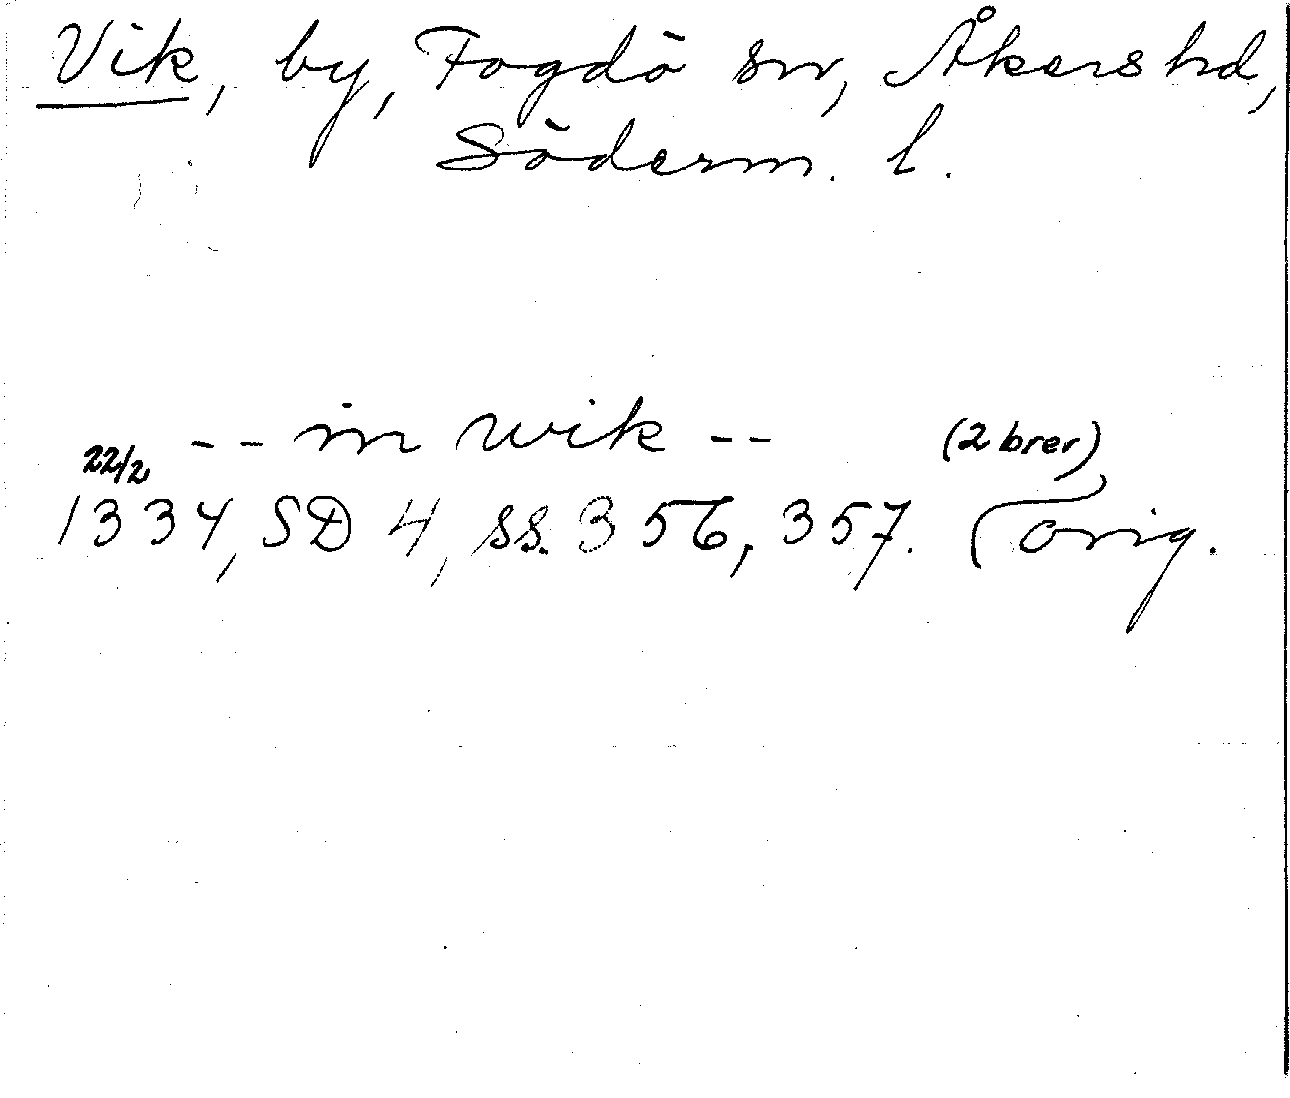 Vik, by, Fogdö sn, Åkers hd,
Söderm. l.
-- in wik -- (2 brev)
22/2
1334, SD 4, ss. 356, 357. orig.